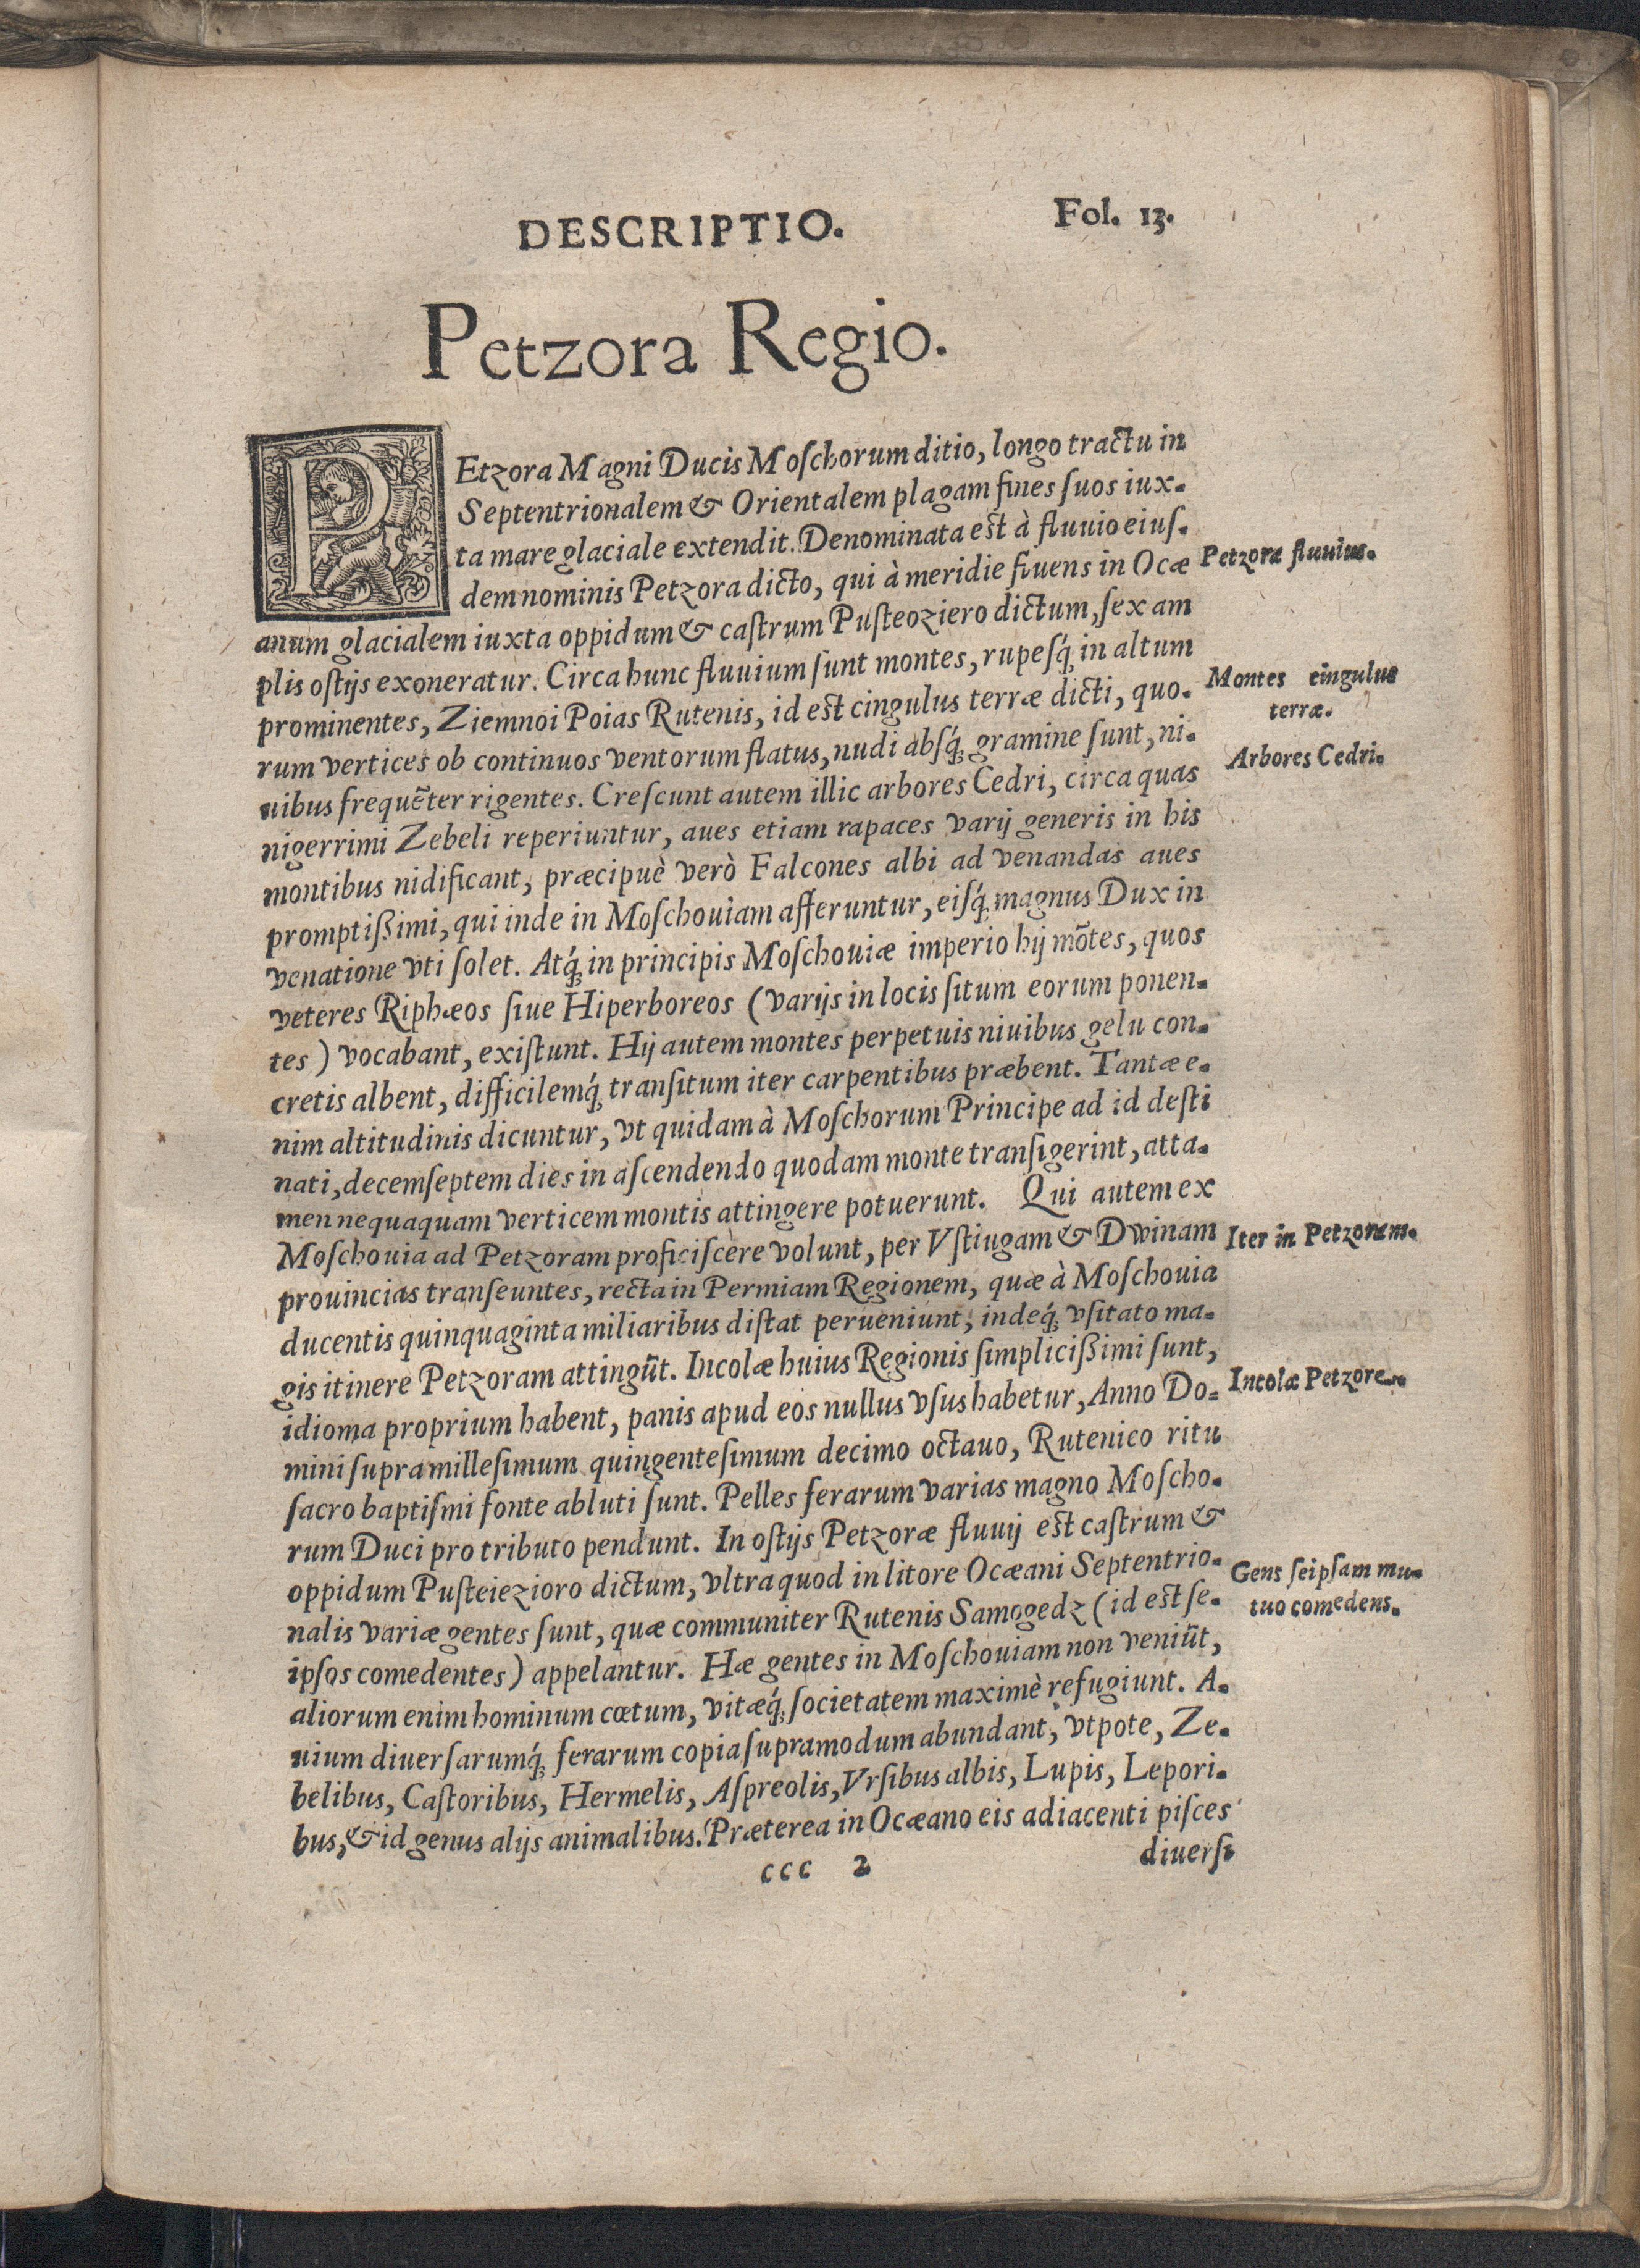 DESCRIPTIO.
Fol. 13.
Petzora Regio.
PEtzora Magni Ducis Moſchorum ditio, longo tractu in
Septentrionalem & Orientalem plagam fines ſuos iux-
ta mare glaciale extendit. Denominata est à fluuio eiuſ-
dem nominis Petzora dicto, qui à meridie fluens in Ocæ
Petzora fluuius.
anum glacialem iuxta oppidum & caſtrum Puſteoziero dictum, ſex am
plis oſtijs exoneratur. Circa hunc fluuium ſunt montes, rupeſq́; in altum
prominentes, Ziemnoi Poias Rutenis, id est cingulus terræ dicti, quo-
Montes cingulus
terræ.
rum vertices ob continuos ventorum flatus, nudi abſq́; gramine ſunt, ni-
Arbores Cedri.
uibus frequẽter rigentes. Creſcunt autem illic arbores Cedri, circa quas
nigerrimi Zebeli reperiuntur, aues etiam rapaces varij generis in his
montibus nidificant, præcipuè verò Falcones albi ad venandas aues
promptiſsimi, qui inde in Moſchouiam afferuntur, eiſq́; magnus Dux in
venatione vti ſolet. Atq́; in principis Moſchouiæ imperio hij mõtes, quos
veteres Riphæos ſiue Hiperboreos (varijs in locis ſitum eorum ponen-
tes) vocabant, exiſtunt. Hij autem montes perpetuis niuibus gelu con-
cretis albent, difficilemq́; tranſitum iter carpentibus præbent. Tantæ e-
nim altitudinis dicuntur, vt quidam à Moſchorum Principe ad id deſti
nati, decemſeptem dies in aſcendendo quodam monte tranſigerint, atta-
men nequaquam verticem montis attingere potuerunt. Qui autem ex
Moſchouia ad Petzoram proficiſcere volunt, per Vſtiugam & Dwinam
Iter in Petzoram.
prouincias tranſeuntes, recta in Permiam Regionem, quæ à Moſchouia
ducentis quinquaginta miliaribus diſtat perueniunt, indeq́; vſitato ma-
gis itinere Petzoram attingũt. Incolæ huius Regionis ſimpliciſsimi ſunt,
Incolæ Petzore.
idioma proprium habent, panis apud eos nullus vſus habetur, Anno Do-
mini ſupra milleſimum quingenteſimum decimo octauo, Rutenico ritu
ſacro baptiſmi fonte abluti ſunt. Pelles ferarum varias magno Moſcho-
rum Duci pro tributo pendunt. In oſtijs Petzoræ fluuij est caſtrum &
oppidum Puſteiezioro dictum, vltra quod in litore Ocæani Septentrio-
Gens ſeipſam mu-
tuo comedens.
nalis variæ gentes ſunt, quæ communiter Rutenis Samogedz (id est ſe-
ipſos comedentes) appelantur. Hæ gentes in Moſchouiam non veniũt,
aliorum enim hominum cœtum, vitæq́; ſocietatem maximè refugiunt. A-
uium diuerſarumq́; ferarum copia ſupramodum abundant, vtpote, Ze-
belibus, Caſtoribus, Hermelis, Aſpreolis, Vrſibus albis, Lupis, Lepori-
bus, & id genus alijs animalibus. Præterea in Ocæano eis adiacenti piſces
ccc 2
diuerſi